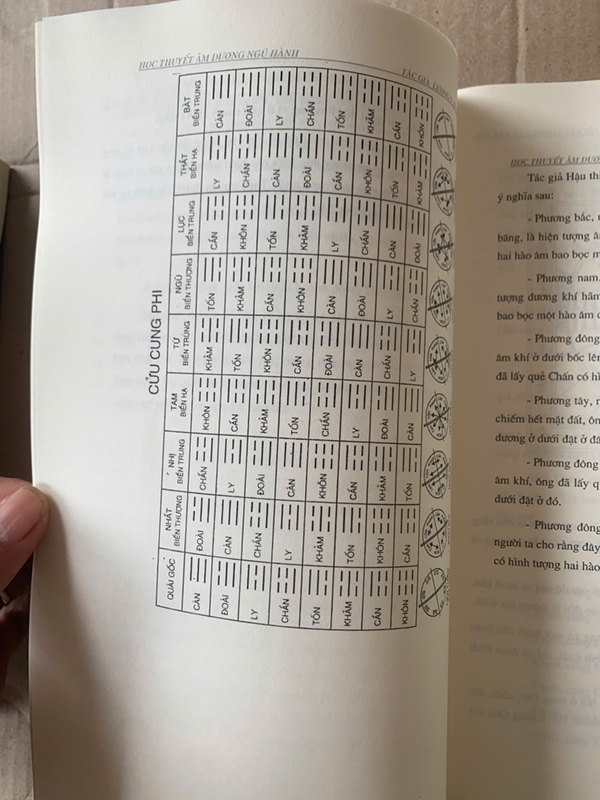 HỌC THUYẾT ÂM DƯƠNG NGŨ HÀNH
TÁC GIẢ
CỬU CUNG PHI
QUÁI GỐC NHẤT NHỊ TAM TỨ NGŨ LỤC THẤT BÁT
BIẾN THƯỢNG BIẾN TRUNG BIẾN HẠ BIẾN TRUNG BIẾN THƯỢNG BIẾN TRUNG BIẾN HẠ BIẾN TRUNG
CÀN ĐOÀI CHẤN KHÔN KHẢM TỐN CẤN LY CÀN
ĐOÀI CÀN LY CẤN TỐN KHẢM KHÔN CHẤN ĐOÀI
LY CHẤN ĐOÀI KHẢM KHÔN CẤN TỐN CÀN LY
CHẤN LY CÀN TỐN CẤN KHÔN KHẢM ĐOÀI CHẤN
TỐN KHẢM KHÔN CHẤN ĐOÀI CÀN LY CẤN TỐN
KHẢM TỐN CẤN LY CÀN ĐOÀI CHẤN KHÔN KHẢM
CẤN KHÔN KHẢM ĐOÀI CHẤN LY CÀN TỐN CẤN
KHÔN CẤN TỐN CÀN LY CHẤN ĐOÀI KHẢM KHÔN
HỌC THUYẾT ÂM
Tác giả Hậu
ý nghĩa sau:
- Phương bắc,
băng, là hiện tượng
hai hào âm bao bọc
- Phương nam,
tượng dương khí
bao bọc một hào âm
- Phương đông
âm khí ở dưới bốc
đã lấy quẻ Chấn có
- Phương tây,
chiếm hết mặt đất,
dương ở dưới đặt ở
- Phương đông
âm khí, ông đã lấy
dưới đặt ở đó.
- Phương đông
người ta cho rằng đây
có hình tượng hai hào